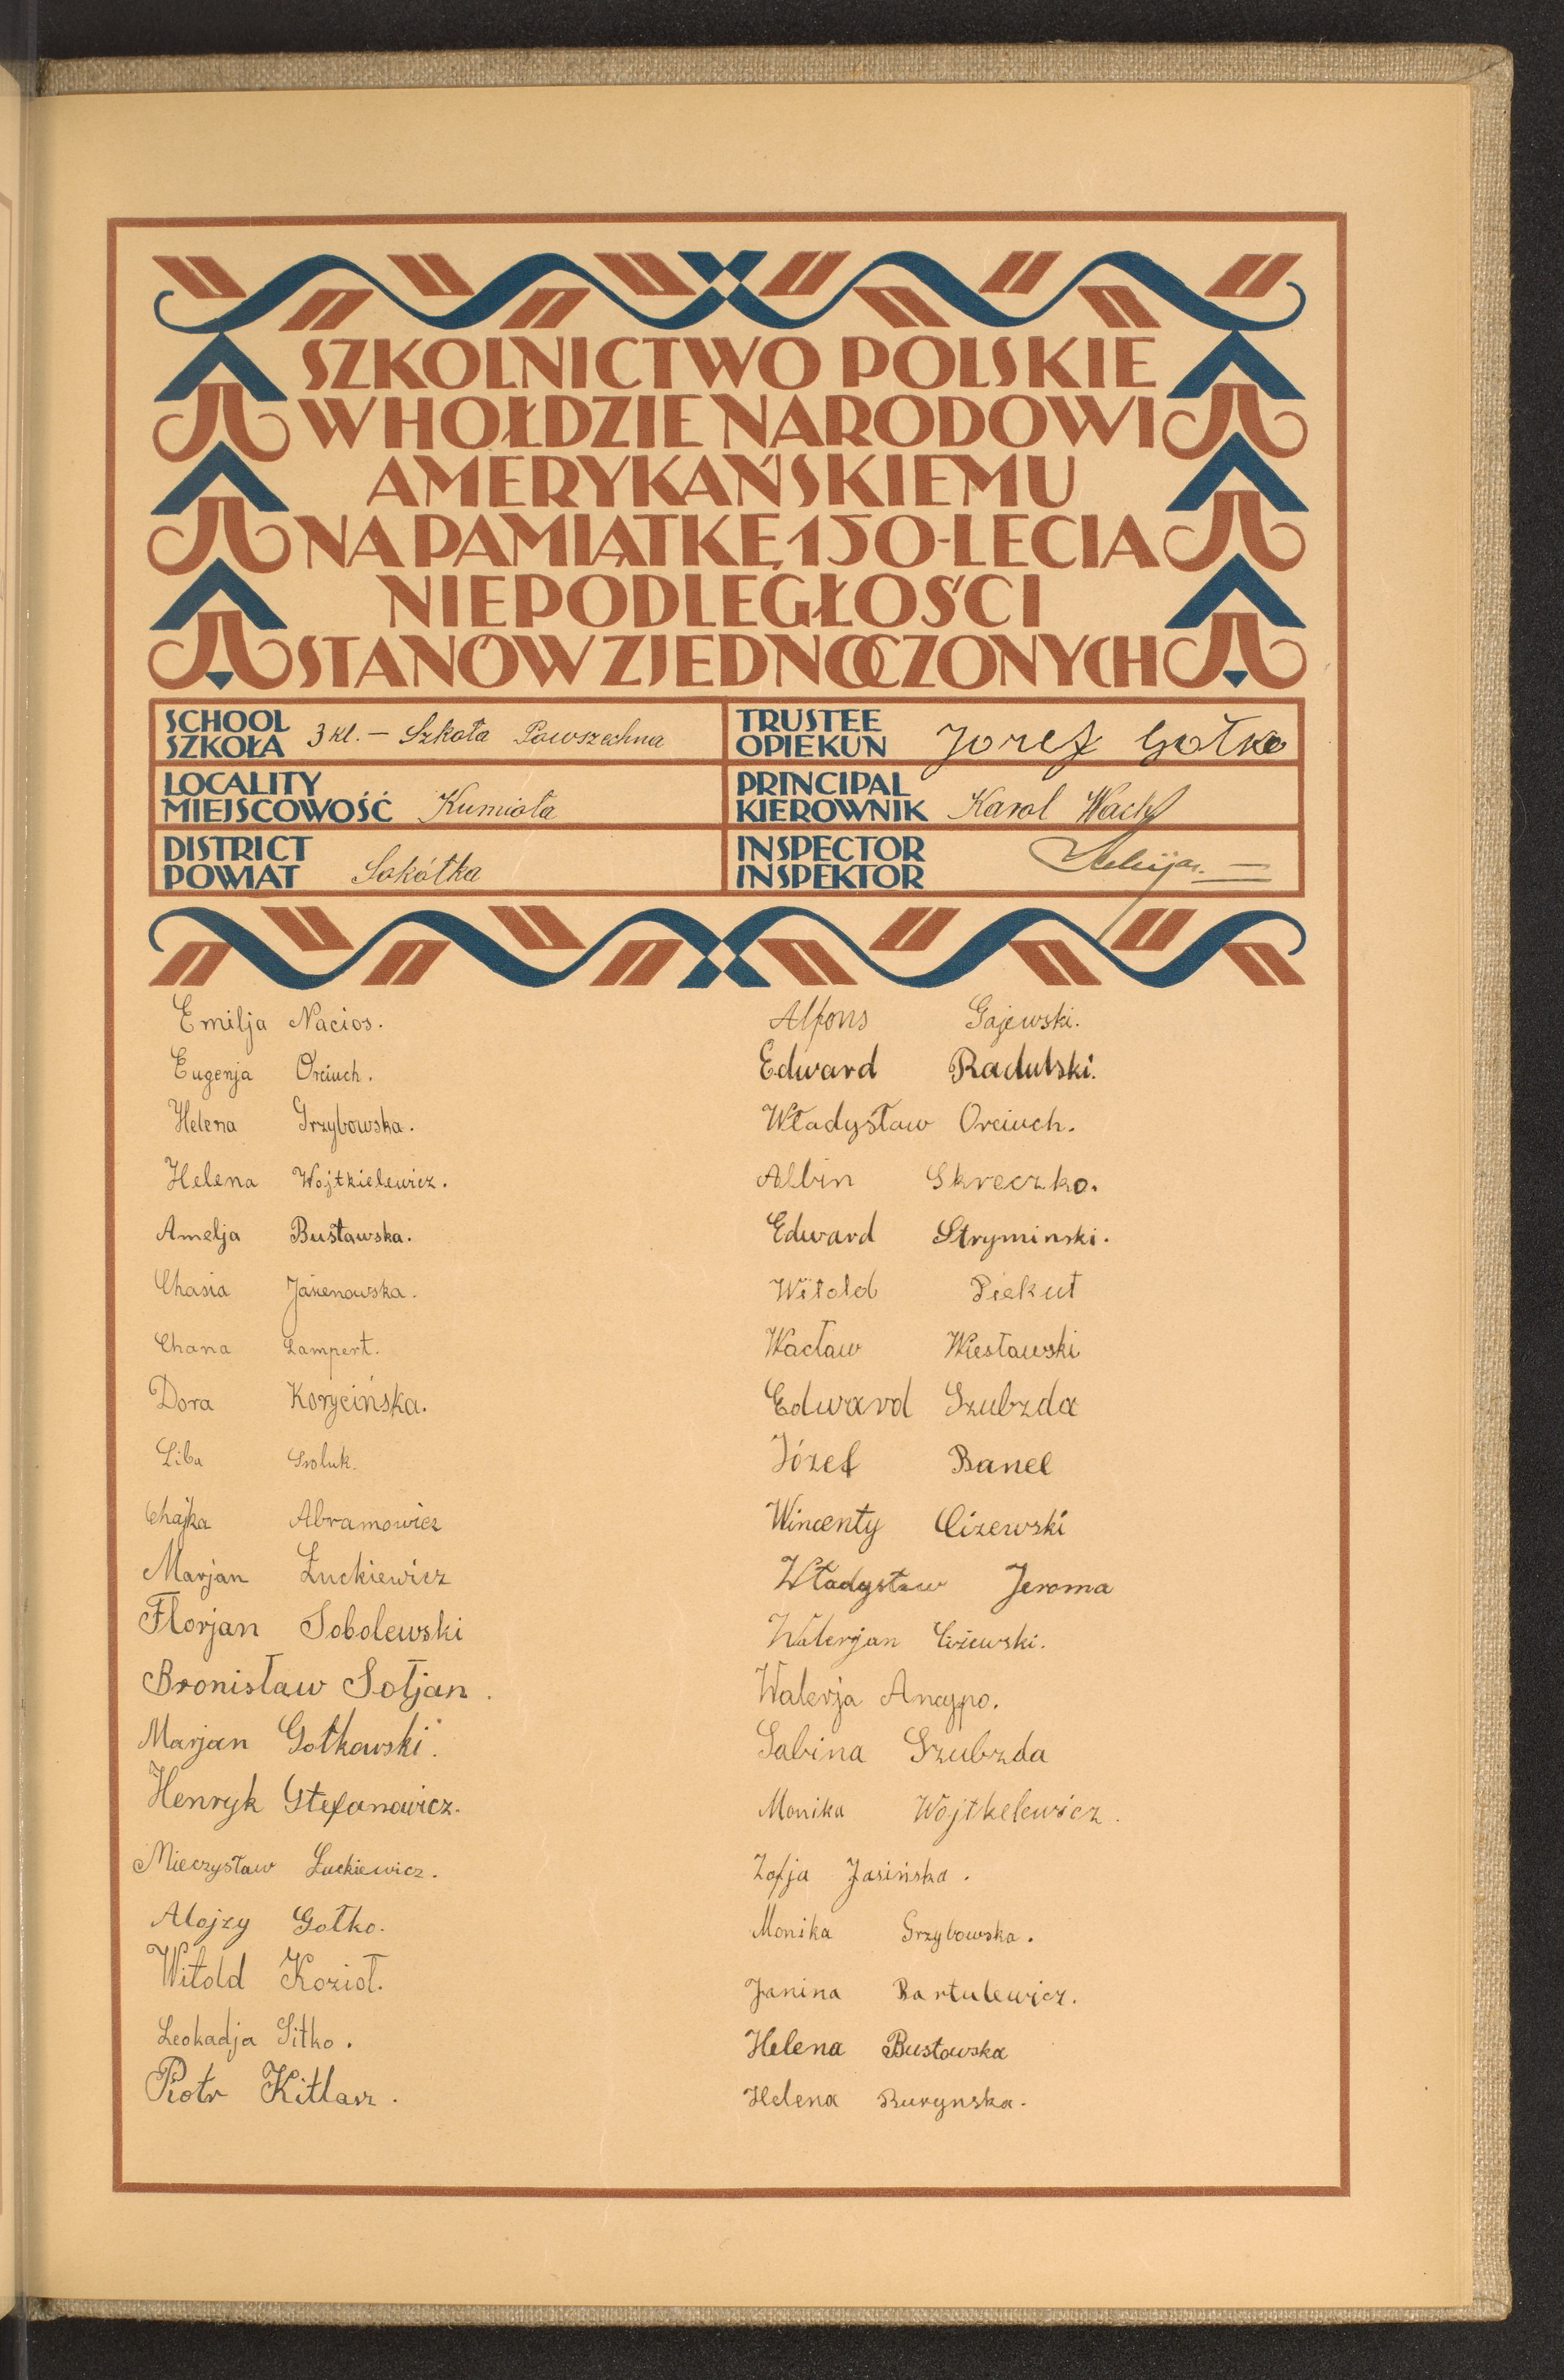 SZKOLNICTWO POLSKIE
W HOŁDZIE NARODOWI
AMERYKAŃSKIEMU
NA PAMIĄTKĘ 150-LECIA
NIEPODLEGŁOŚCI
STANÓW ZJEDNOCZONYCH
SCHOOL
SZKOŁA 3 kl. – Szkoła Powszechna
LOCALITY
MIEJSCOWOŚĆ Kumiała
DISTRICT
POWIAT Sokółka
TRUSTEE
OPIEKUN Jozef Gołko
PRINCIPAL
KIEROWNIK Karol
INSPECTOR
INSPEKTOR
Emilja Nacios.
Eugenja Orciuch.
Helena Grzybowska.
Helena Wojtkielewicz.
Amelja Busławska.
Chasia Jasienowska.
Chana Lampert.
Dora Korycińska.
Liba Sroluk.
Chajka Abramowicz
Marjan Łuckiewicz
Florjan Sobolewski
Bronisław Sołjan.
Marjan Gołkowski.
Henryk Stefanowicz.
Mieczysław Łuckiewicz.
Alojzy Gołko.
Witold Kozioł.
Leokadja Sitko.
Piotr Kitlasz.
Alfons Gajewski.
Edward Radulski.
Władysław Orciuch.
Albin Skreczko.
Edward Stryminski.
Witold Piekut
Wacław Wiesławski
Edward Szubzda
Józef Banel
Wincenty Cizewski
Władysław Jeroma
Walerjan Ciżewski.
Walerja Ancypo.
Sabina Szubzda
Monika Wojtkelewicz.
Zofja Jasińska.
Monika Grzybowska.
Janina Bartulewicz.
Helena Busłowska
Helena Burynska.